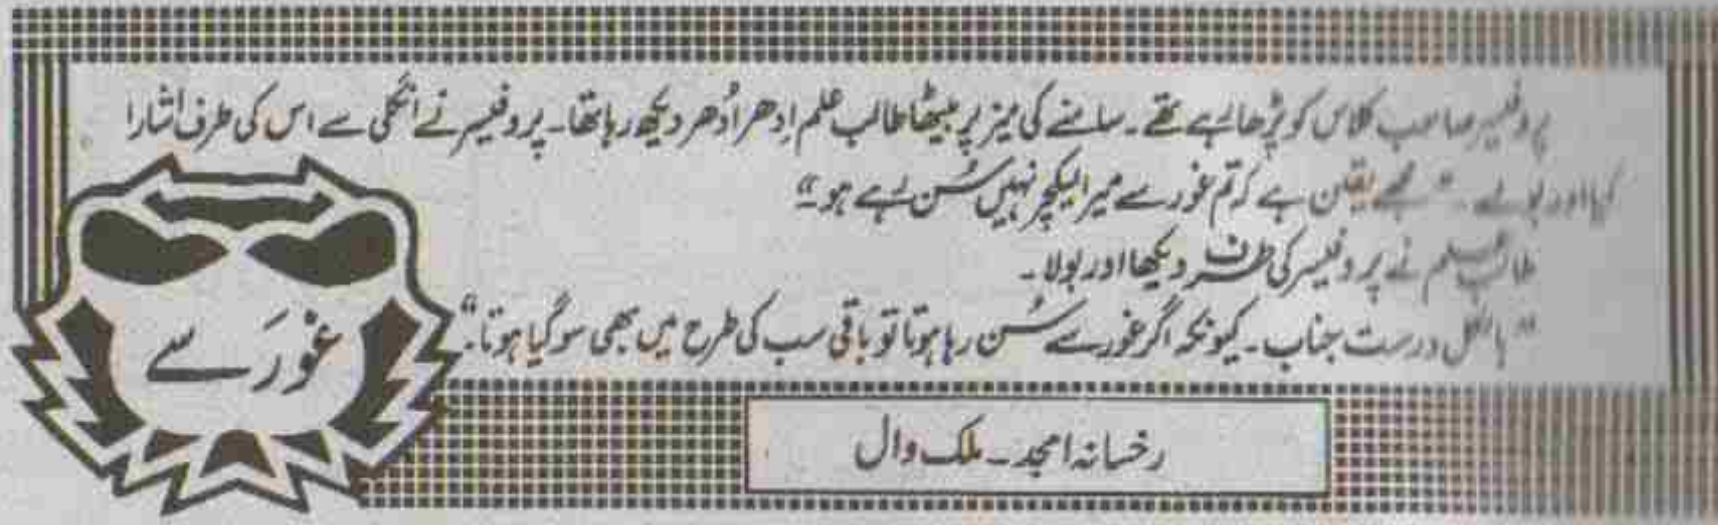 پروفیسر صاحب کلاس کو پڑھا رہے تھے۔ سامنے کی میز پر بیٹھا طالب علم اِدھر اُدھر دیکھ رہا تھا۔ پروفیسر نے انگلی سے اس کی طرف اشارا
کیا اور بولے۔ "مجھے یقین ہے کہ تم غور سے میرا لیکچر نہیں سُن رہے ہو"
طالب علم نے پروفیسر کی طرف دیکھا اور بولا۔
"بالکل درست جناب۔ کیونکہ اگر غور سے سُن رہا ہوتا تو باقی سب کی طرح میں بھی سو گیا ہوتا۔"
غور سے
رخسانہ امجد۔ ملک وال